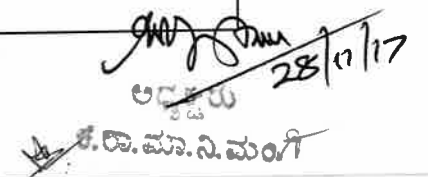 28/11/17
ಅಧ್ಯಕ್ಷರು
ಕ.ರಾ.ಮಾ.ನಿ.ಮಂಗಿ